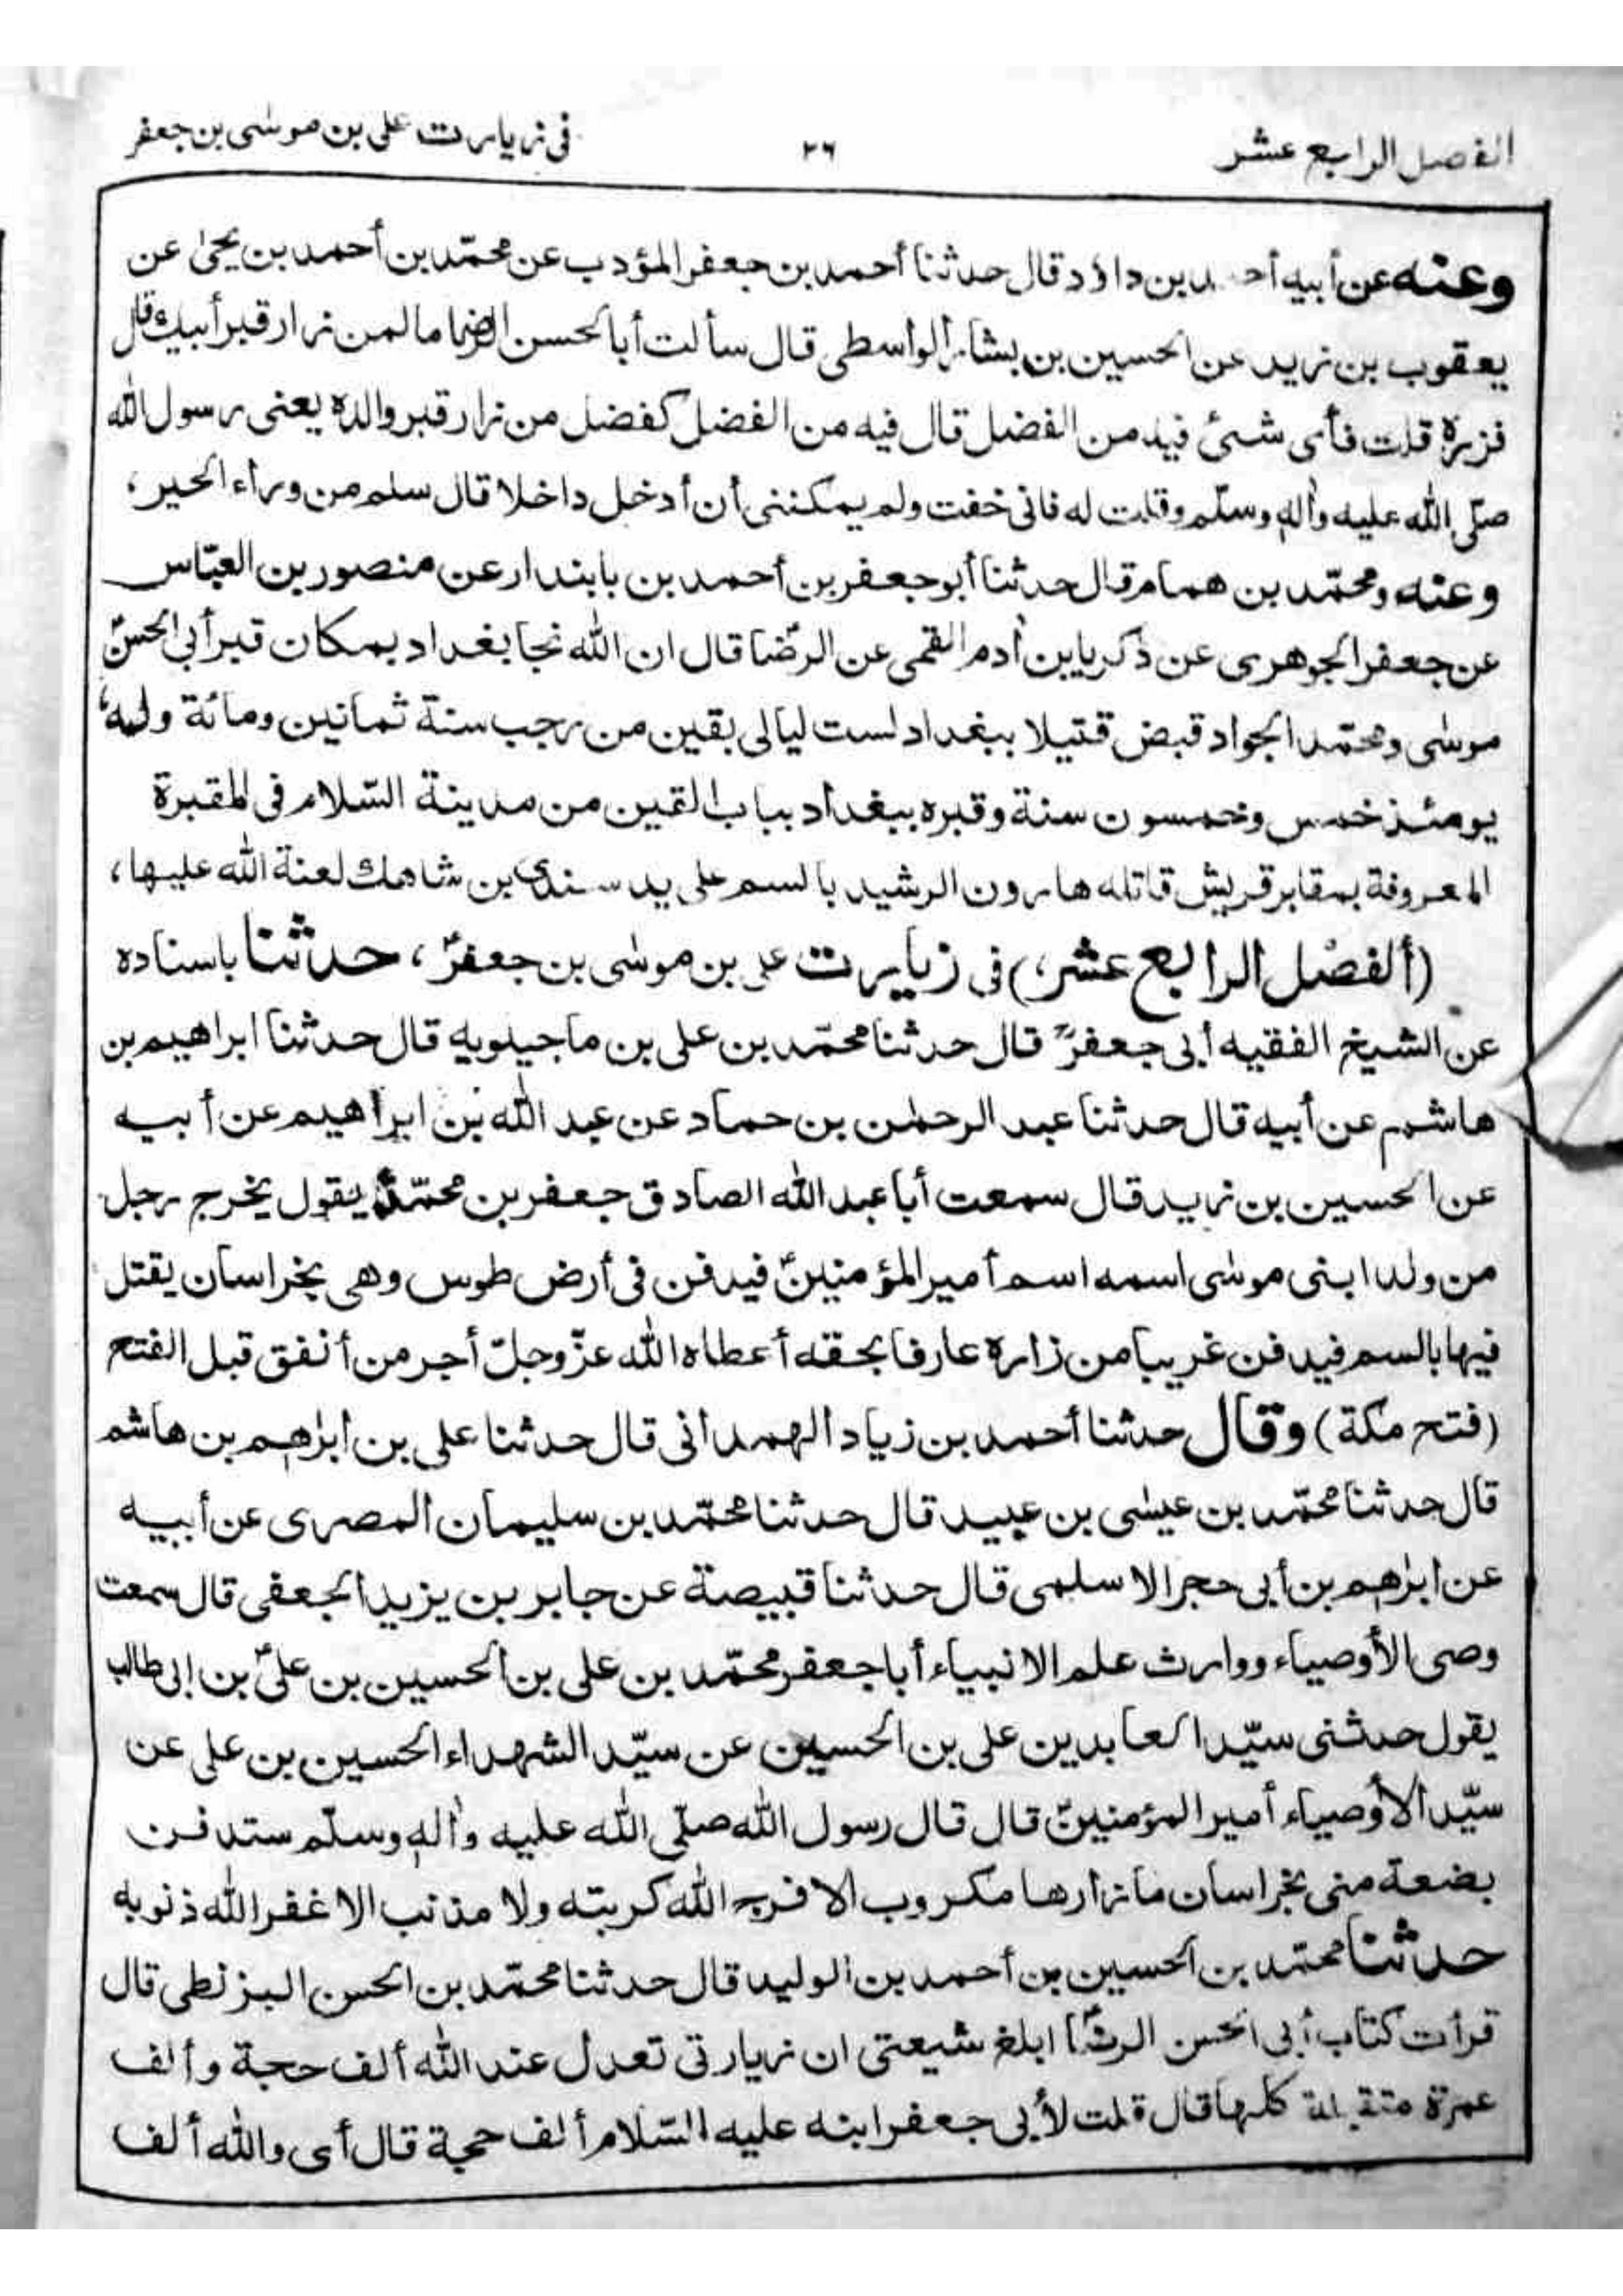 الفصل الرابع عشر ٢٦ فى زيارت على بن موسٰى بن جعفر
وعنه عن أبيه أحمد بن داؤد قال حدثنا أحمد بن جعفر المؤدب عن محمّد بن أحمد بن يحيٰ عن
يعقوب بن زيد عن الحسين بن بشار الواسطى قال سألت أبا الحسن الرضا ما لمن زار قبر أبيك قال
فزره قلت فأى شئ فيه من الفضل قال فيه من الفضل كفضل من زار قبر والده يعنى رسول الله
صلّى الله عليه واٰله وسلّم وقلت له فانى خفت ولم يمكننى أن أدخل داخلا قال سلم من وراء الحير،
وعنه ومحمّد بن همام قال حدثنا أبو جعفر بن أحمد بن بابندار عن منصور بن العبّاس
عن جعفر الجوهرى عن ذكريا بن اٰدم القمى عن الرضا قال ان الله نجا بغداد بمكان قبر أبى الحسنؑ
موسٰى ومحمّد الجواد قبض قتيلا ببغداد لست ليالى بقين من رجب سنة ثمانين ومائة وله
يومئذ خمس وخمسون سنة وقبره ببغداد بباب التين من مدينة السّلام فى المقبرة
المعروفة بمقابر قريش قاتله هارون الرشيد بالسم على يد سندى بن شاهك لعنة الله عليها،
(ألفصل الرابع عشر،) فى زيارت على بن موسٰى بن جعفرؑ، حدثنا باسناده
عن الشيخ الفقيه أبى جعفرؒ قال حدثنا محمّد بن على بن ماجيلويه قال حدثنا ابراهيم بن
هاشم عن أبيه قال حدثنا عبد الرحمٰن بن حماد عن عبد الله بن ابراهيم عن أبيه
عن الحسين بن زيد قال سمعت أبا عبد الله الصادق جعفر بن محمّدؑ يقول يخرج رجل
من ولد ابنى موسٰى اسمه اسم أمير المؤمنينؑ فيدفن فى أرض طوس وهى بخراسان يقتل
فيها بالسم فيدفن غريبا من زاره عارفا بحقه أعطاه الله عزّ وجلّ أجر من أنفق قبل الفتح
(فتح مكة) وقال حدثنا أحمد بن زياد الهمدانى قال حدثنا على بن ابرٰهيم بن هاشم
قال حدثنا محمّد بن عيسٰى بن عبيد قال حدثنا محمّد بن سليمان المصرى عن أبيه
عن ابرٰهيم بن أبى حجر الاسلمى قال حدثنا قبيصة عن جابر بن يزيد الجعفى قال سمعت
وصى الأوصياء ووارث علم الانبياء أبا جعفر محمّد بن على بن الحسين بن علىؑ بن ابى طالب
يقول حدثنى سيّد العابدين على بن الحسين عن سيّد الشهداء الحسين بن على عن
سيّد الأوصياء أمير المؤمنينؑ قال قال رسول الله صلّى الله عليه واٰله وسلّم ستدفن
بضعة منى بخراسان ما زارها مكروب الا فرج الله كربته ولا مذنب الا غفر الله ذنوبه
حدثنا محمّد بن الحسين بن أحمد بن الوليد قال حدثنا محمّد بن الحسن البزنطى قال
قرأت كتاب أبى الحسن الرضا ابلغ شيعتى ان زيارتى تعدل عند الله ألف حجة وألف
عمرة متقبلة كلها قال قلت لأبى جعفر ابنه عليه السّلام ألف حجة قال أى والله ألف